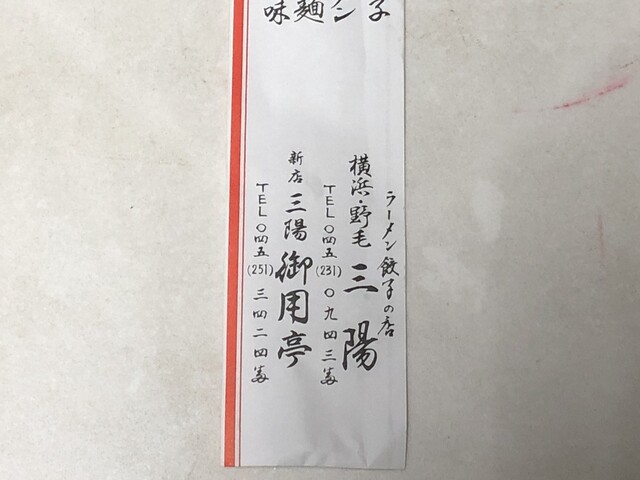 子
ン
麺
味
ラーメン餃子の店
横浜・野毛 三陽
TEL〇四五(231)〇九四三番
新店 三陽御用亭
TEL〇四五(251)三四二四番